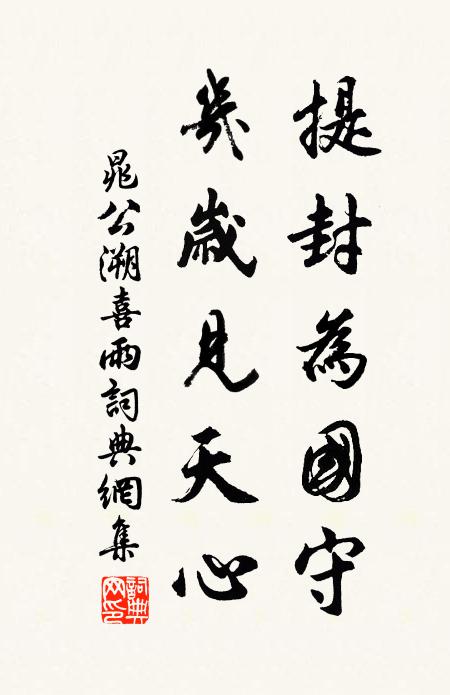 提封為國守
幾歲見天心
晁公溯喜雨詞典網集
詞典網印